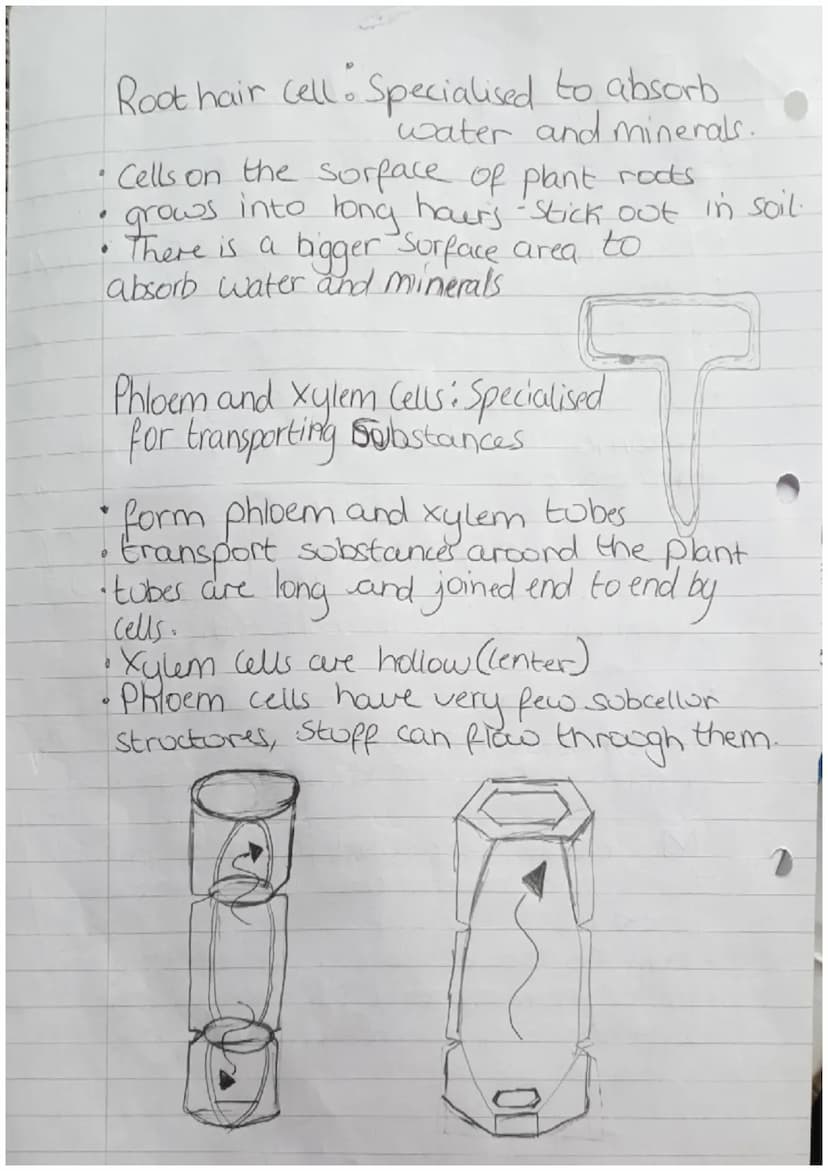 Root hair cell: Specialised to absorb
water and minerals.
• Cells on the surface of plant roots
• grows into long hairs - stick out in soil.
• There is a bigger surface area to
absorb water and minerals
Phloem and Xylem Cells: Specialised
for transporting Substances
• form phloem and xylem tubes
• transport substances around the plant
• tubes are long and joined end to end by
cells.
• Xylem cells are hollow (center)
• Phloem cells have very few subcellur
structores, Stuff can flow through them.